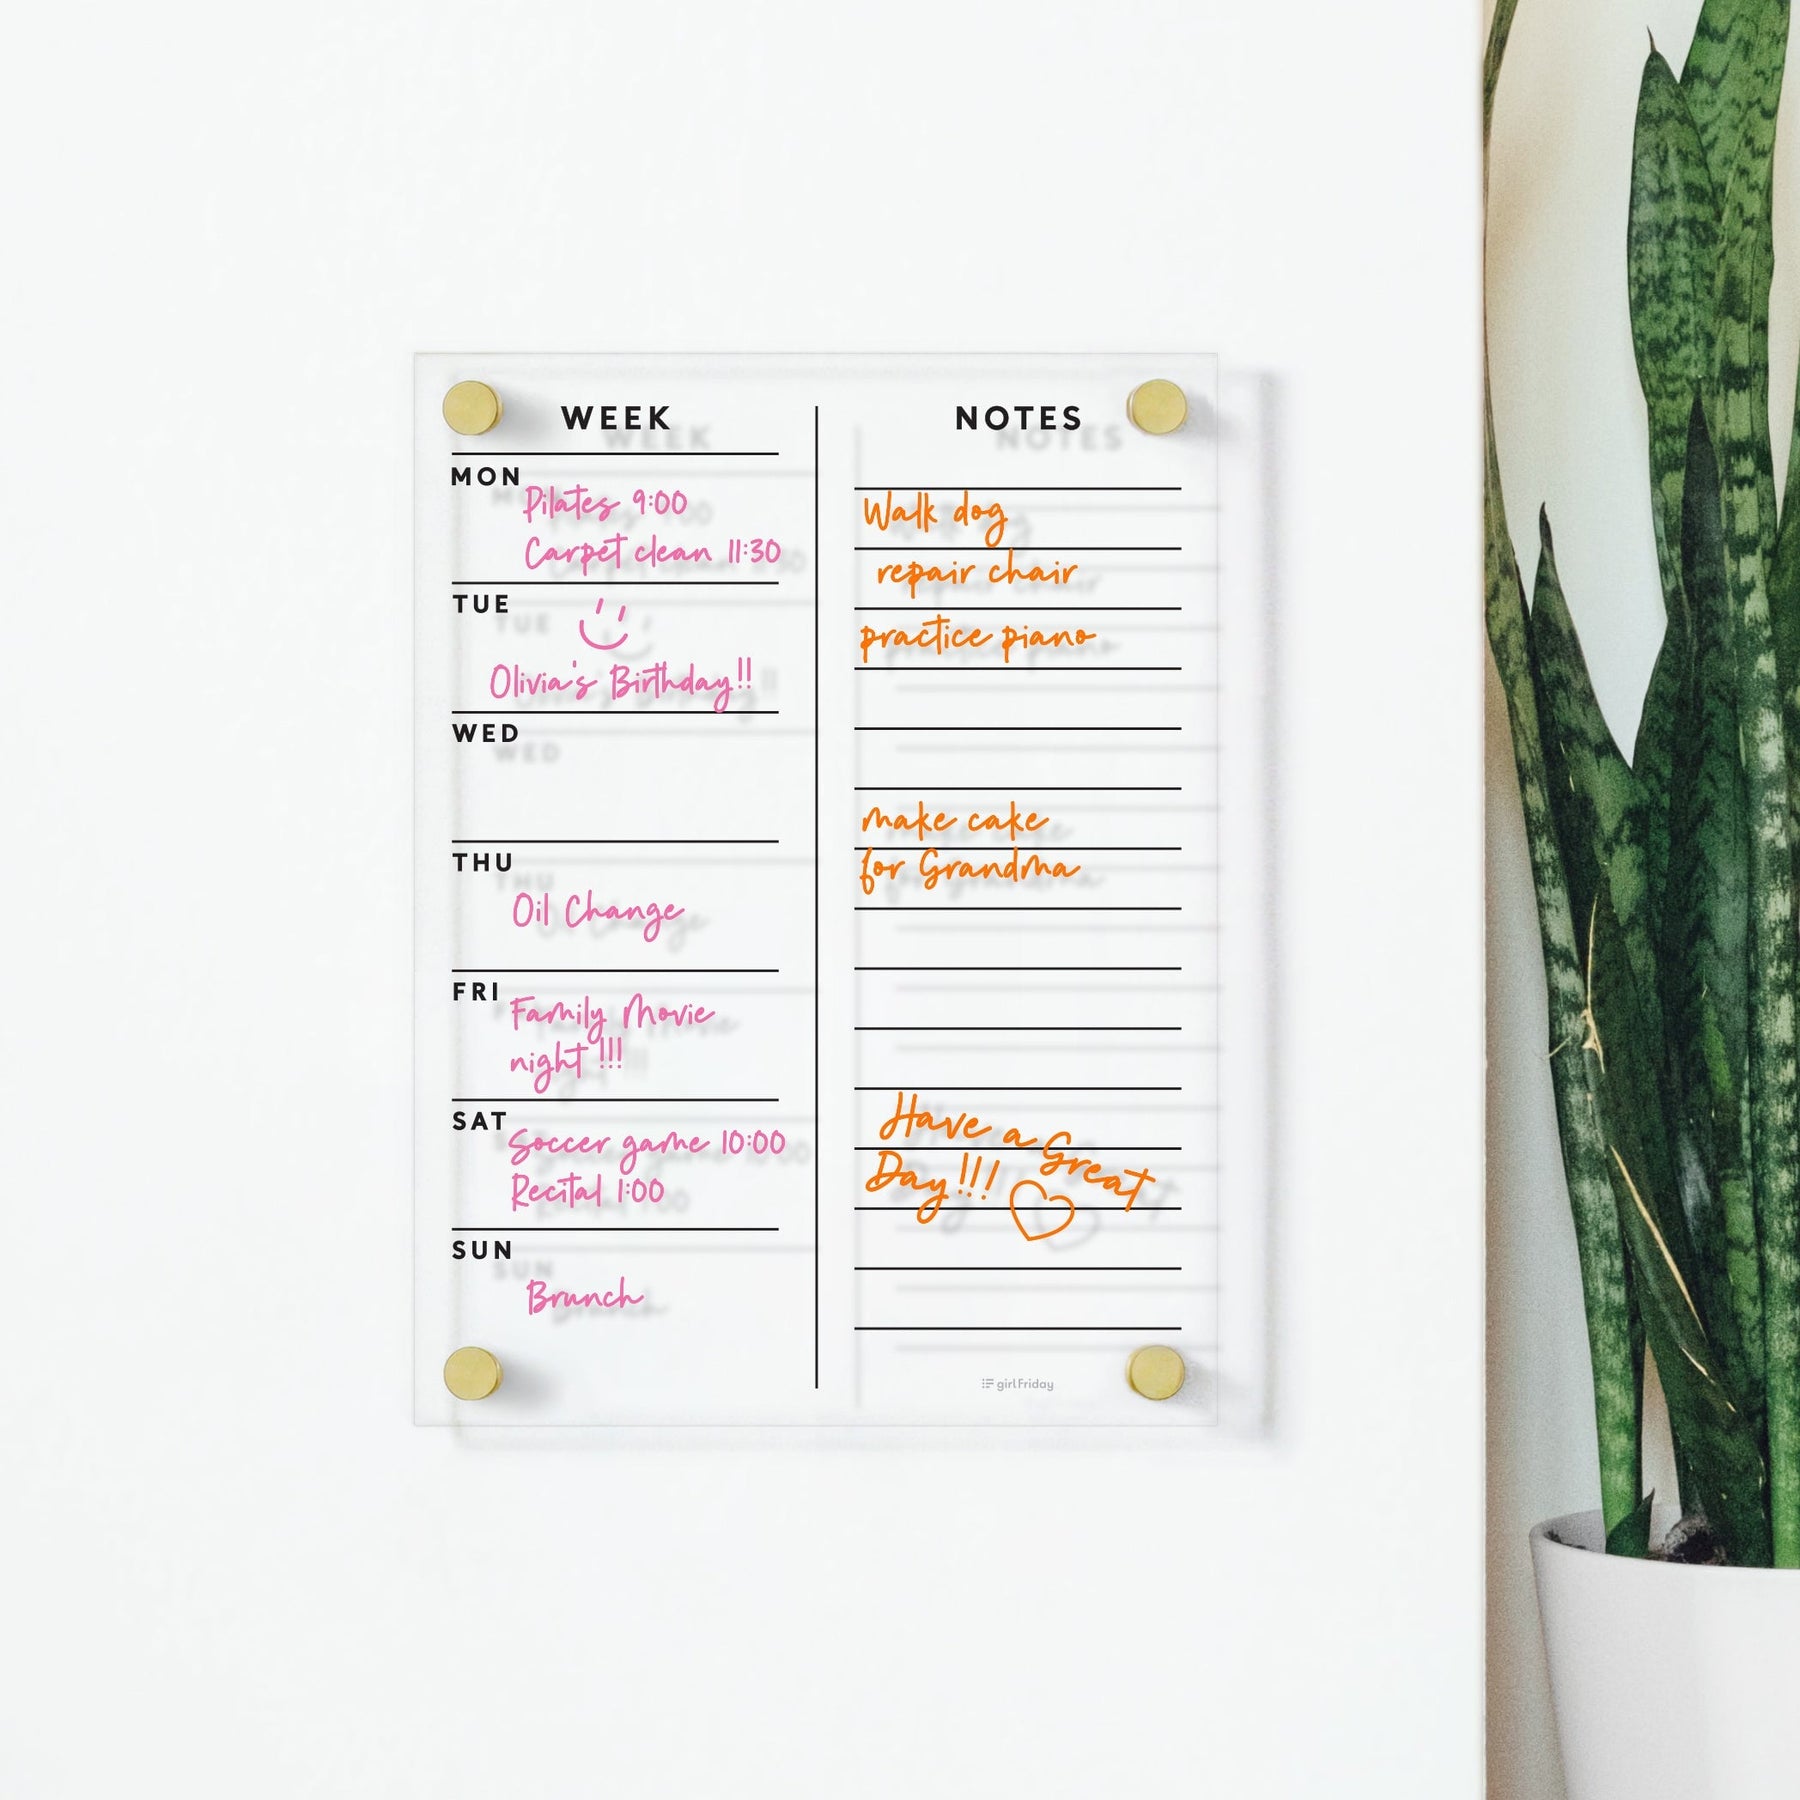 WEEK
MON
Pilates 9:00
Carpet clean 11:30
TUE
Olivia's Birthday!!
WED
THU
Oil Change
FRI
Family Movie
night !!!
SAT
Soccer game 10:00
Recital 1:00
SUN
Brunch
NOTES
Walk dog
repair chair
practice piano
make cake
for Grandma
Have a Great
Day!!!
girlFriday